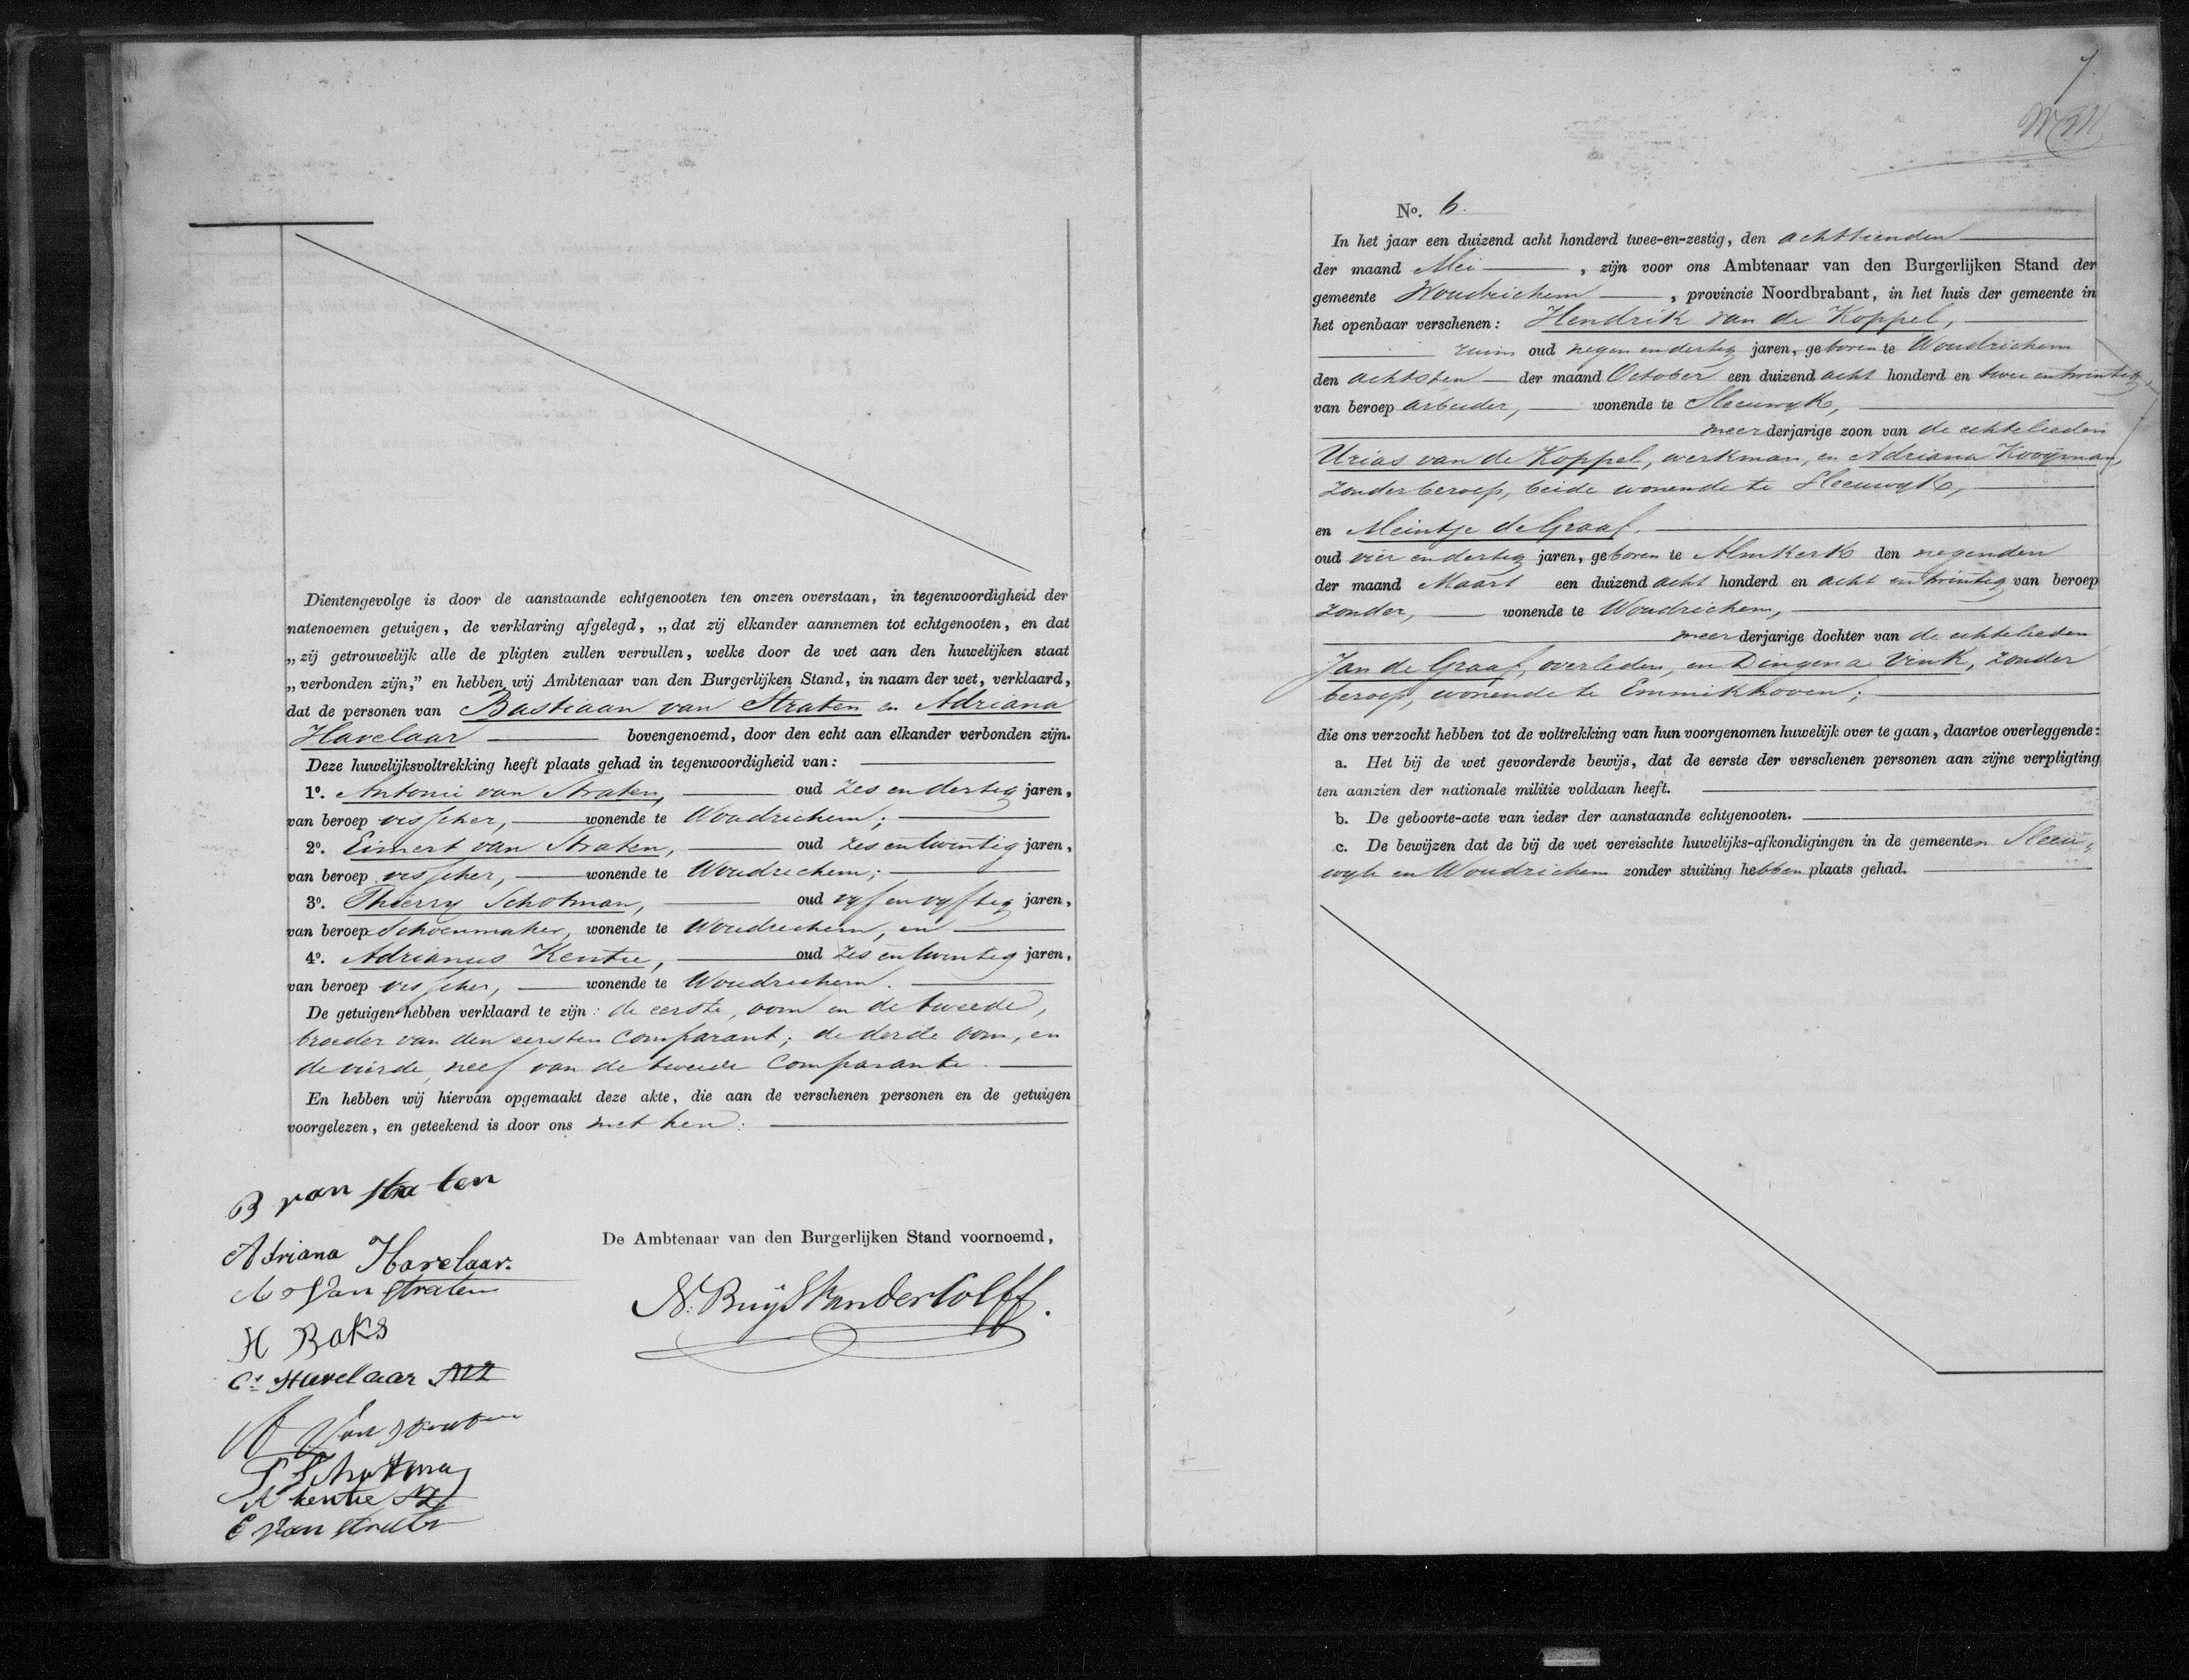 Dientengevolge is door de aanstaande echtgenooten ten onzen overstaan, in tegenwoordigheid der
natenoemen getuigen, de verklaring afgelegd, „dat zij elkander aannemen tot echtgenooten, en dat
„zij getrouwelijk alle de pligten zullen vervullen, welke door de wet aan den huwelijken staat
„verbonden zijn,” en hebben wij Ambtenaar van den Burgerlijken Stand, in naam der wet, verklaard,
dat de personen van Bastiaan van Straten en Adriana
Havelaar bovengenoemd, door den echt aan elkander verbonden zijn.
Deze huwelijksvoltrekking heeft plaats gehad in tegenwoordigheid van:
1º. Antonie van Straten, oud zes en dertig jaren,
van beroep visscher, wonende te Woudrichem;
2º. Eimert van Straten, oud zes en twintig jaren,
van beroep visscher, wonende te Woudrichem;
3º. Thierry Schotman, oud vyf en vyftig jaren,
van beroep Schoenmaker, wonende te Woudrichem, en
4º. Adrianus Kentie, oud zes en twintig jaren,
van beroep visscher, wonende te Woudrichem.
De getuigen hebben verklaard te zijn: de eerste, oom en de tweede,
broeder van den eersten Comparant; de derde oom, en
de vierde, neef van de tweede Comparante.
En hebben wij hiervan opgemaakt deze akte, die aan de verschenen personen en de getuigen
voorgelezen, en geteekend is door ons met hen.
B van straten
De Ambtenaar van den Burgerlijken Stand voornoemd,
Adriana Havelaar.
van Straten
N. Buijs van der Colff.
H Baks
Cs Havelaar
A Van Straten
T Schotman
A kentie
E van straten
7
No. 6.
In het jaar een duizend acht honderd twee-en-zestig, den achttienden
der maand Mei, zijn voor ons Ambtenaar van den Burgerlijken Stand der
gemeente Woudrichem, provincie Noordbrabant, in het huis der gemeente in
het openbaar verschenen: Hendrik van de Koppel,
ruim oud negen en dertig jaren, geboren te Woudrichem
den achtsten der maand October een duizend acht honderd en twee en twintig,
van beroep arbeider, wonende te Sleeuwyk,
meerderjarige zoon van de echtelieden
Urias van de Koppel, werkman, en Adriana Kooyman,
zonder beroep, beide wonende te Sleeuwyk,
en Meintje de Graaf,
oud vier en dertig jaren, geboren te Almkerk den negenden
der maand Maart een duizend acht honderd en acht en twintig van beroep
zonder, wonende te Woudrichem,
meerderjarige dochter van de echtelieden
Jan de Graaf, overleden, en Dingena Vink, zonder
beroep, wonende te Emmikhoven;
die ons verzocht hebben tot de voltrekking van hun voorgenomen huwelijk over te gaan, daartoe overleggende:
a. Het bij de wet gevorderde bewijs, dat de eerste der verschenen personen aan zijne verpligting
ten aanzien der nationale militie voldaan heeft.
b. De geboorte-acte van ieder der aanstaande echtgenooten.
c. De bewijzen dat de bij de wet vereischte huwelijks-afkondigingen in de gemeenten Sleeu-
wyk en Woudrichem zonder stuiting hebben plaats gehad.